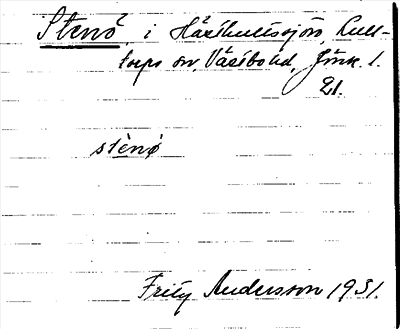 Stenö, i Hästhultssjön, Kull-
torps sn, Västbo hd, Jönk. l.
21.
stènø
Fritz Andersson 1931.